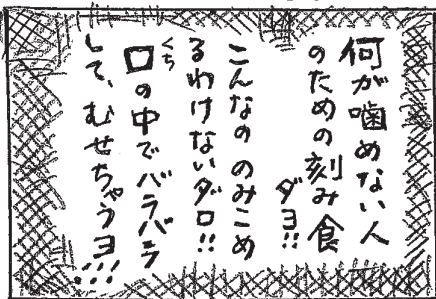 何が噛めない人
のための刻み食
ダヨ!!
こんなの のみこめ
るわけないダロ!!
くち
口の中でバラバラ
して、むせちゃうヨ!!!